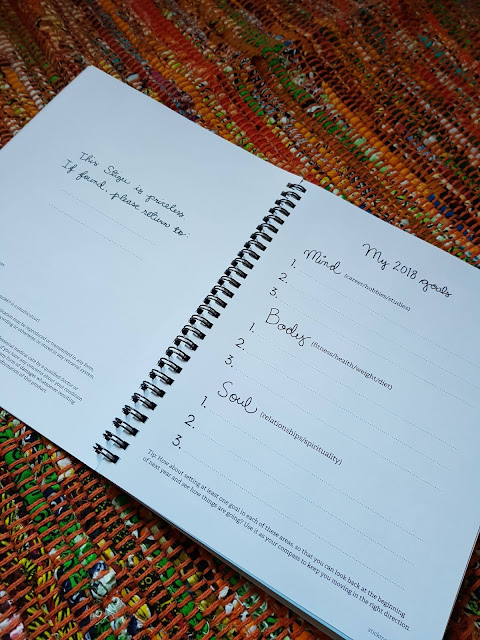 This is priceless.
If found, please return to:
may be reproduced or transmitted in any form,
My 2018 goals
Mind (career/hobbies/studies)
1.
2.
3.
Body (fitness/health/weight/diet)
1.
2.
3.
Soul (relationships/spirituality)
1.
2.
3.
Tip: How about setting at least one goal in each of these areas, so that you can look back at the beginning
of next year and see how things are going? Use it as your compass to keep you moving in the right direction.